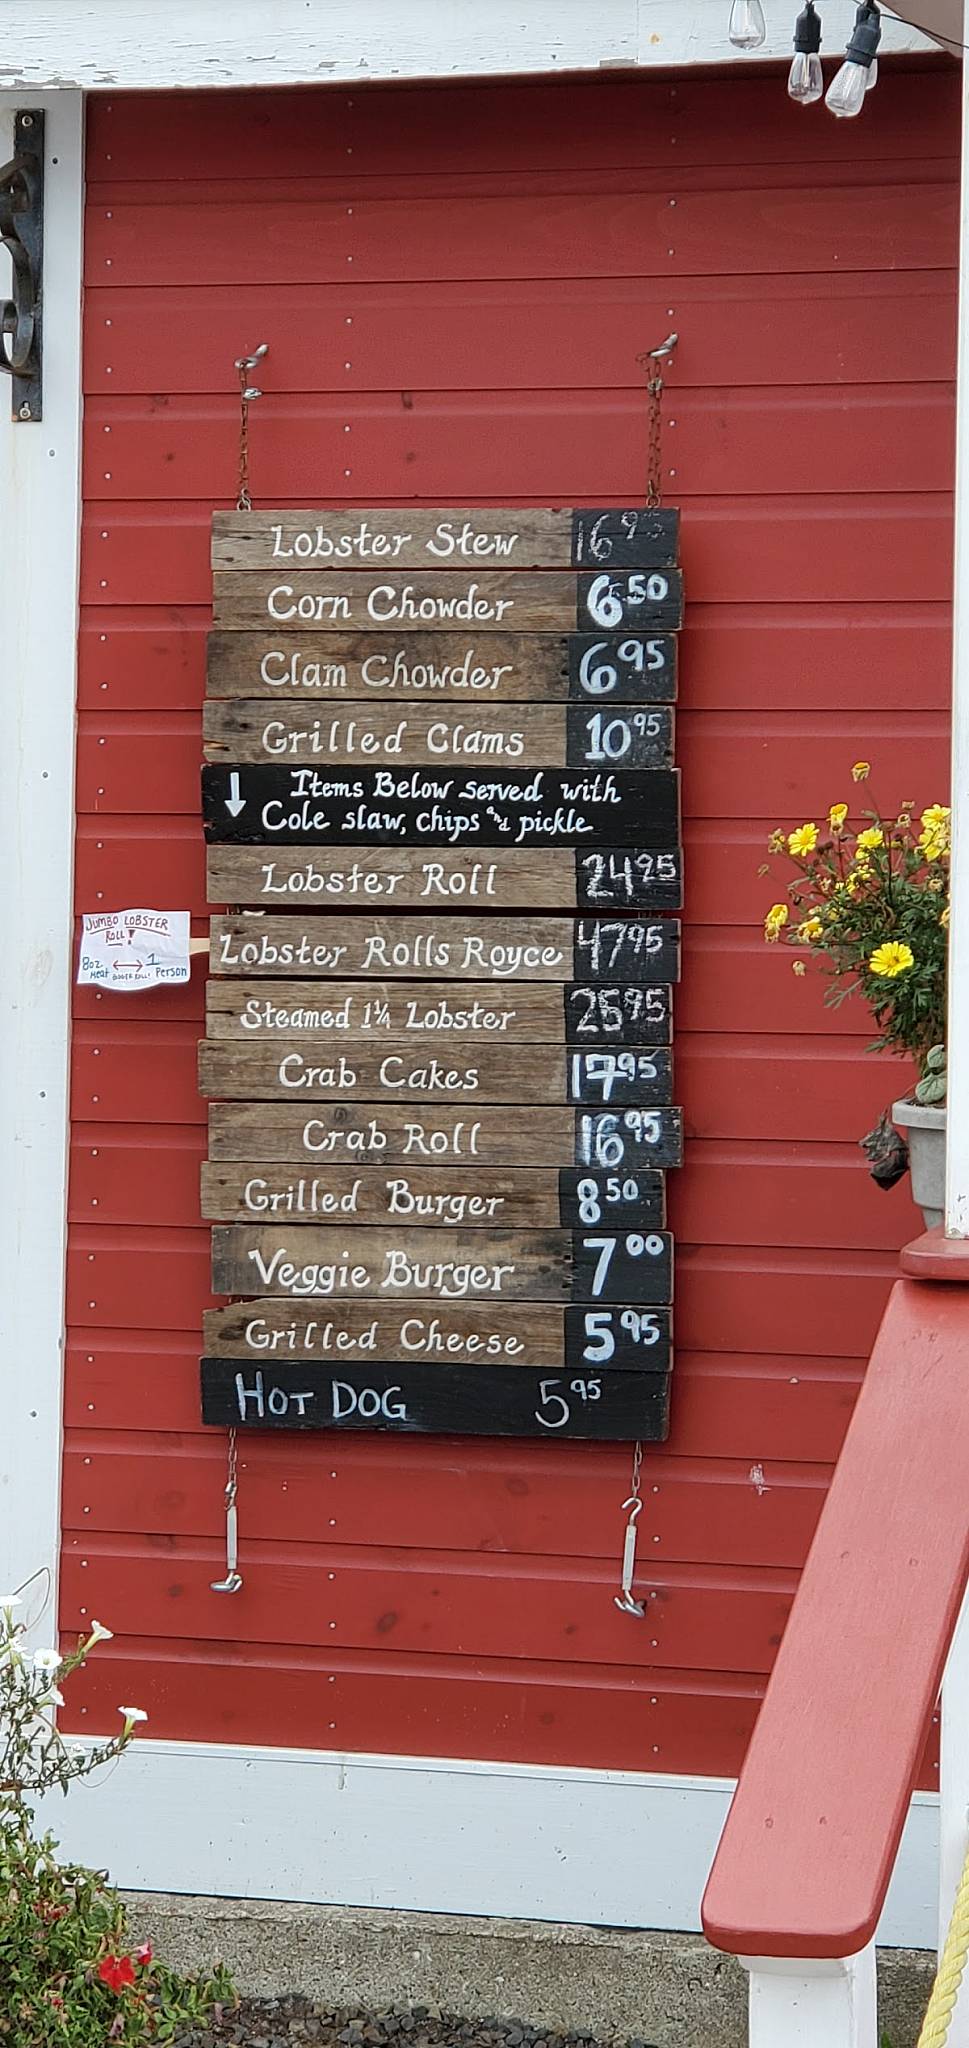 Lobster Stew 16 95
Corn Chowder 6 50
Clam Chowder 6 95
Grilled Clams 10 95
Items Below served with
Cole slaw, chips and pickle
Lobster Roll 24 95
JUMBO LOBSTER
ROLL!
8oz. 1
Meat Person
Lobster Rolls Royce 47 95
Steamed 1¼ Lobster 95
Crab Cakes 17 95
Crab Roll 16 95
Grilled Burger 8 50
Veggie Burger 7 00
Grilled Cheese 5 95
HOT DOG 5 95